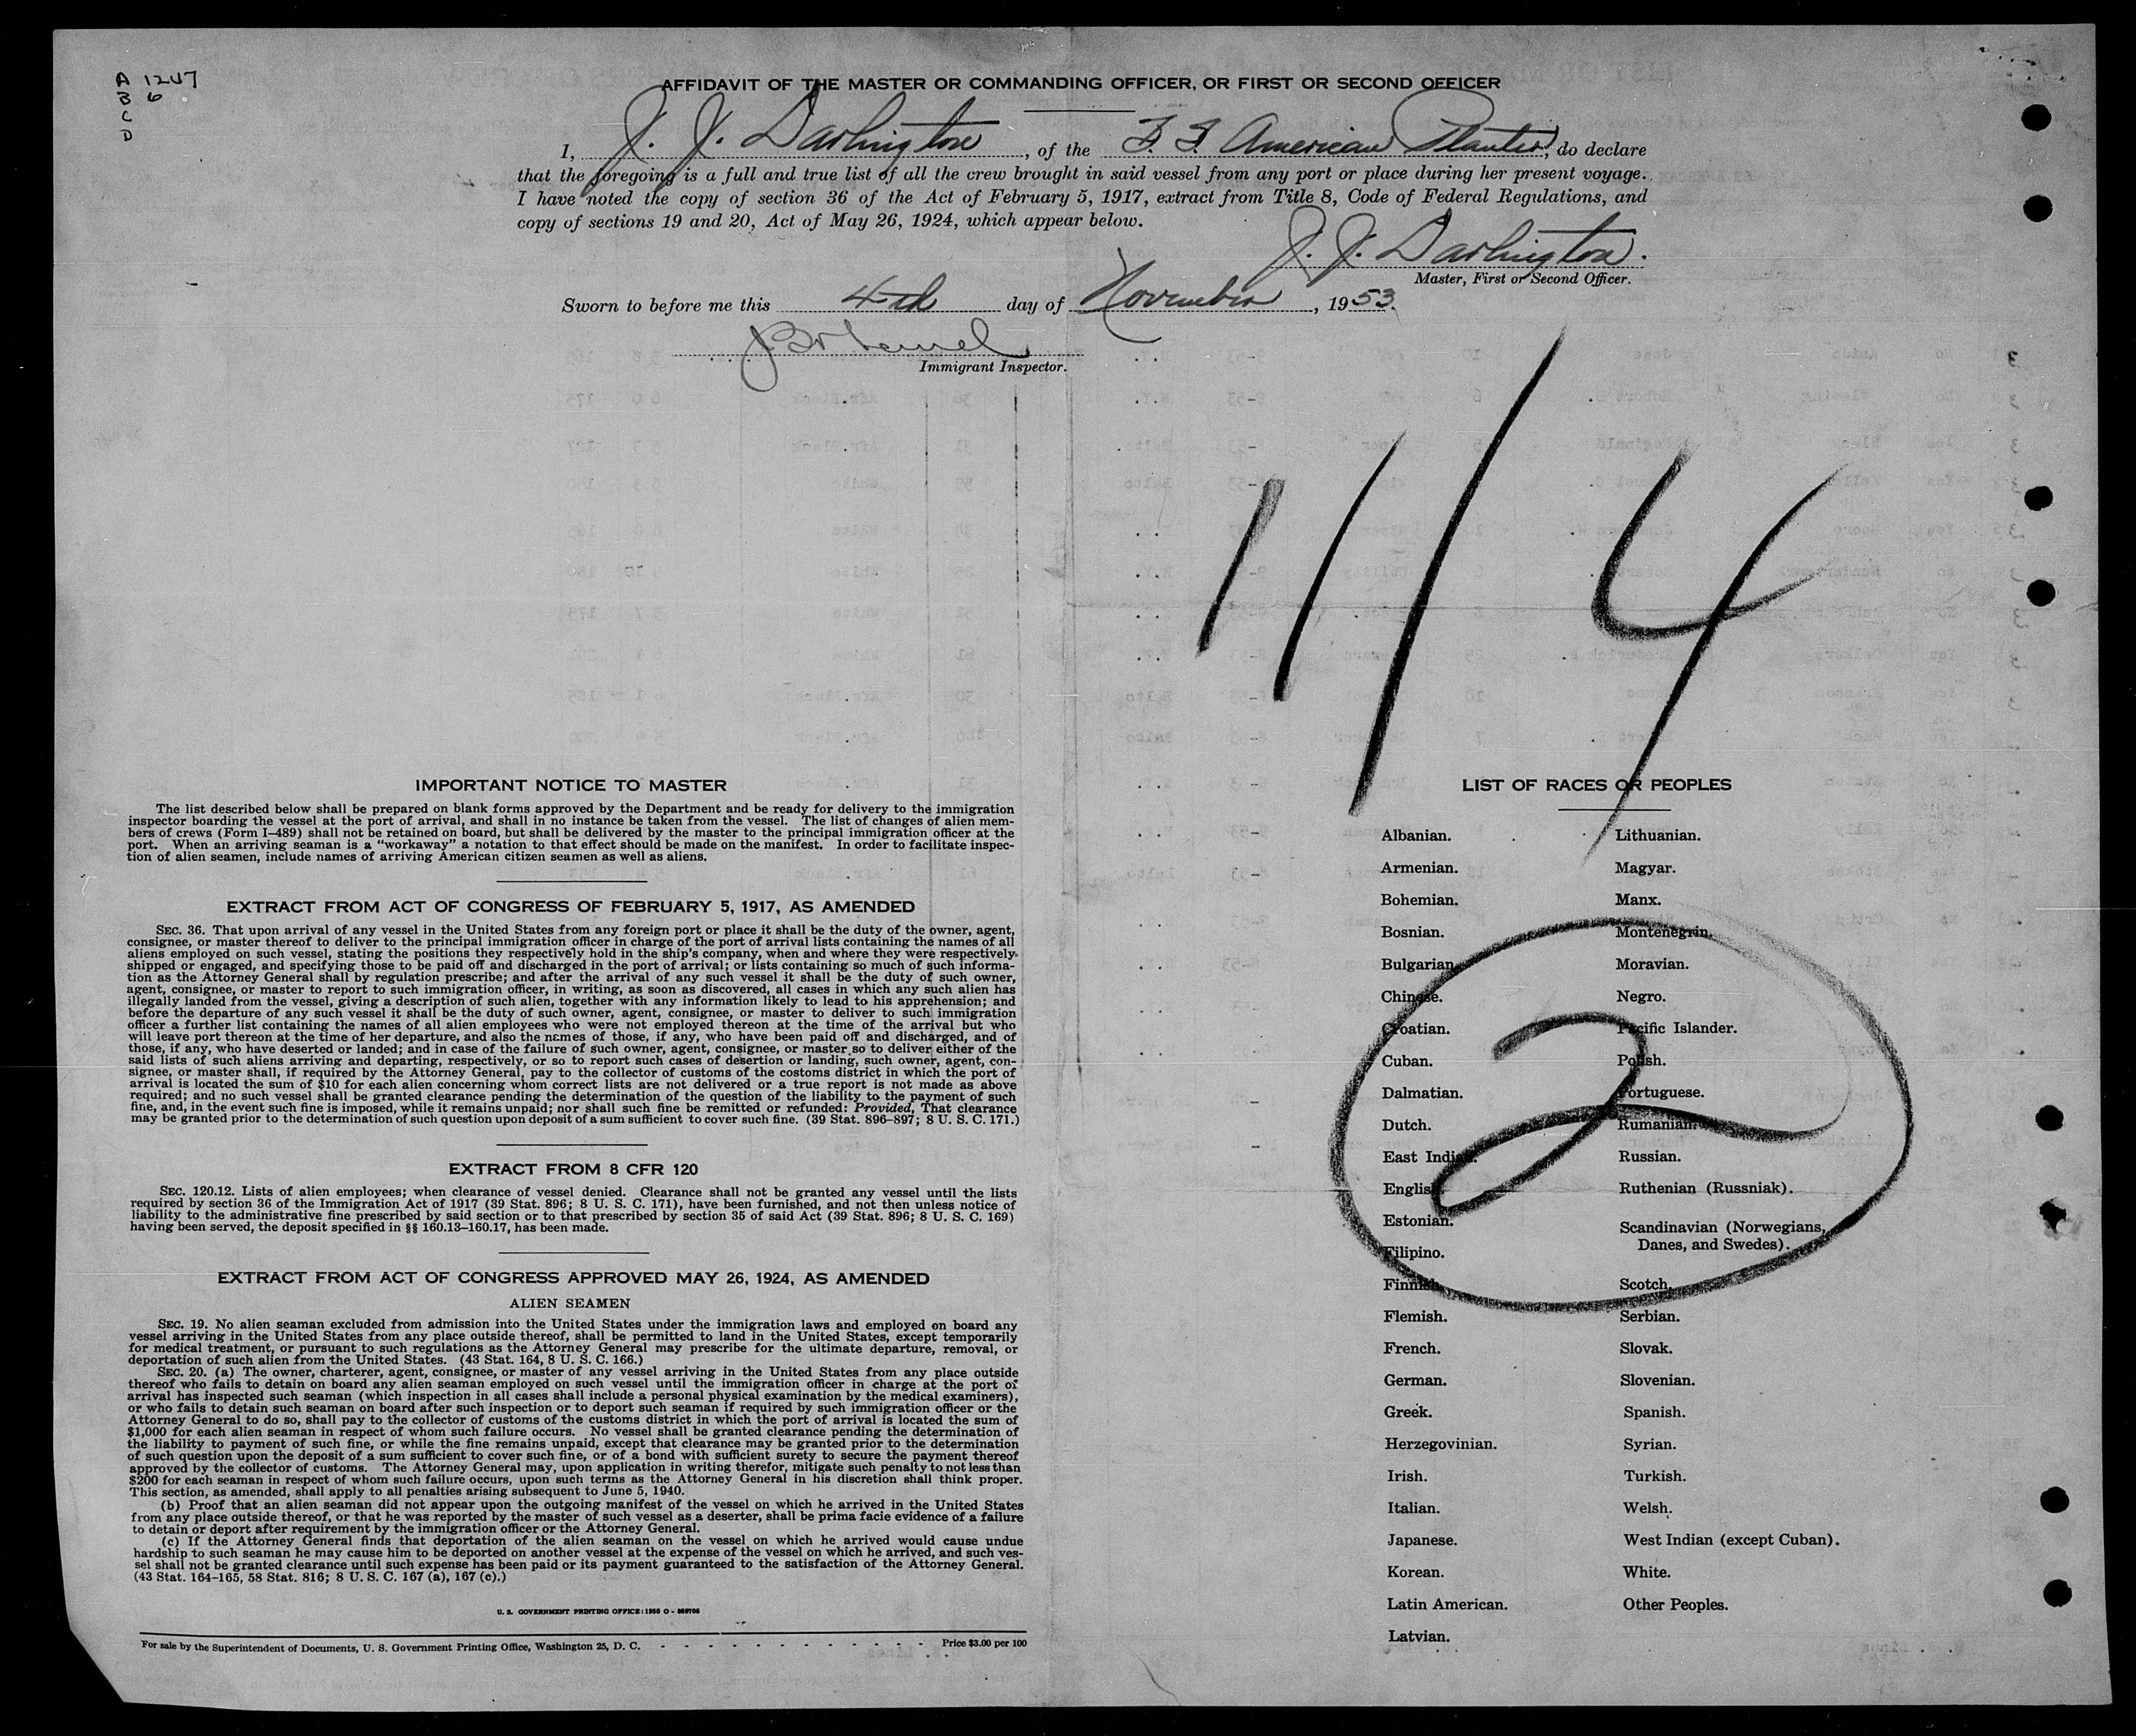 A 1247
B 6
C
D
AFFIDAVIT OF THE MASTER OR COMMANDING OFFICER, OR FIRST OR SECOND OFFICER
I, J. J. Darlington, of the S. S. American Planter, do declare
that the foregoing is a full and true list of all the crew brought in said vessel from any port or place during her present voyage.
I have noted the copy of section 36 of the Act of February 5, 1917, extract from Title 8, Code of Federal Regulations, and
copy of sections 19 and 20, Act of May 26, 1924, which appear below.
J. J. Darlington.
Master, First or Second Officer.
Sworn to before me this 4th day of November, 1953.
Immigrant Inspector.
11/4
2
IMPORTANT NOTICE TO MASTER
The list described below shall be prepared on blank forms approved by the Department and be ready for delivery to the immigration
inspector boarding the vessel at the port of arrival, and shall in no instance be taken from the vessel. The list of changes of alien mem-
bers of crews (Form I–489) shall not be retained on board, but shall be delivered by the master to the principal immigration officer at the
port. When an arriving seaman is a “workaway” a notation to that effect should be made on the manifest. In order to facilitate inspec-
tion of alien seamen, include names of arriving American citizen seamen as well as aliens.
EXTRACT FROM ACT OF CONGRESS OF FEBRUARY 5, 1917, AS AMENDED
SEC. 36. That upon arrival of any vessel in the United States from any foreign port or place it shall be the duty of the owner, agent,
consignee, or master thereof to deliver to the principal immigration officer in charge of the port of arrival lists containing the names of all
aliens employed on such vessel, stating the positions they respectively hold in the ship's company, when and where they were respectively
shipped or engaged, and specifying those to be paid off and discharged in the port of arrival; or lists containing so much of such informa-
tion as the Attorney General shall by regulation prescribe; and after the arrival of any such vessel it shall be the duty of such owner,
agent, consignee, or master to report to such immigration officer, in writing, as soon as discovered, all cases in which any such alien has
illegally landed from the vessel, giving a description of such alien, together with any information likely to lead to his apprehension; and
before the departure of any such vessel it shall be the duty of such owner, agent, consignee, or master to deliver to such immigration
officer a further list containing the names of all alien employees who were not employed thereon at the time of the arrival but who
will leave port thereon at the time of her departure, and also the names of those, if any, who have been paid off and discharged, and of
those, if any, who have deserted or landed; and in case of the failure of such owner, agent, consignee, or master so to deliver either of the
said lists of such aliens arriving and departing, respectively, or so to report such cases of desertion or landing, such owner, agent, con-
signee, or master shall, if required by the Attorney General, pay to the collector of customs of the costoms district in which the port of
arrival is located the sum of $10 for each alien concerning whom correct lists are not delivered or a true report is not made as above
required; and no such vessel shall be granted clearance pending the determination of the question of the liability to the payment of such
fine, and, in the event such fine is imposed, while it remains unpaid; nor shall such fine be remitted or refunded: Provided, That clearance
may be granted prior to the determination of such question upon deposit of a sum sufficient to cover such fine. (39 Stat. 896–897; 8 U. S. C. 171.)
EXTRACT FROM 8 CFR 120
SEC. 120.12. Lists of alien employees; when clearance of vessel denied. Clearance shall not be granted any vessel until the lists
required by section 36 of the Immigration Act of 1917 (39 Stat. 896; 8 U. S. C. 171), have been furnished, and not then unless notice of
liability to the administrative fine prescribed by said section or to that prescribed by section 35 of said Act (39 Stat. 896; 8 U. S. C. 169)
having been served, the deposit specified in §§ 160.13–160.17, has been made.
EXTRACT FROM ACT OF CONGRESS APPROVED MAY 26, 1924, AS AMENDED
ALIEN SEAMEN
SEC. 19. No alien seaman excluded from admission into the United States under the immigration laws and employed on board any
vessel arriving in the United States from any place outside thereof, shall be permitted to land in the United States, except temporarily
for medical treatment, or pursuant to such regulations as the Attorney General may prescribe for the ultimate departure, removal, or
deportation of such alien from the United States. (43 Stat. 164, 8 U. S. C. 166.)
SEC. 20. (a) The owner, charterer, agent, consignee, or master of any vessel arriving in the United States from any place outside
thereof who fails to detain on board any alien seaman employed on such vessel until the immigration officer in charge at the port of
arrival has inspected such seaman (which inspection in all cases shall include a personal physical examination by the medical examiners),
or who fails to detain such seaman on board after such inspection or to deport such seaman if required by such immigration officer or the
Attorney General to do so, shall pay to the collector of customs of the customs district in which the port of arrival is located the sum of
$1,000 for each alien seaman in respect of whom such failure occurs. No vessel shall be granted clearance pending the determination of
the liability to payment of such fine, or while the fine remains unpaid, except that clearance may be granted prior to the determination
of such question upon the deposit of a sum sufficient to cover such fine, or of a bond with sufficient surety to secure the payment thereof
approved by the collector of customs. The Attorney General may, upon application in writing therefor, mitigate such penalty to not less than
$200 for each seaman in respect of whom such failure occurs, upon such terms as the Attorney General in his discretion shall think proper.
This section, as amended, shall apply to all penalties arising subsequent to June 5, 1940.
(b) Proof that an alien seaman did not appear upon the outgoing manifest of the vessel on which he arrived in the United States
from any place outside thereof, or that he was reported by the master of such vessel as a deserter, shall be prima facie evidence of a failure
to detain or deport after requirement by the immigration officer or the Attorney General.
(c) If the Attorney General finds that deportation of the alien seaman on the vessel on which he arrived would cause undue
hardship to such seaman he may cause him to be deported on another vessel at the expense of the vessel on which he arrived, and such ves-
sel shall not be granted clearance until such expense has been paid or its payment guaranteed to the satisfaction of the Attorney General.
(43 Stat. 164–165, 58 Stat. 816; 8 U. S. C. 167 (a), 167 (c).)
U. S. GOVERNMENT PRINTING OFFICE:
For sale by the Superintendent of Documents, U. S. Government Printing Office, Washington 25, D. C. - - - - - - - - - - - - Price $3.00 per 100
LIST OF RACES OR PEOPLES
Albanian.
Armenian.
Bohemian.
Bosnian.
Bulgarian.
Chinese.
Croatian.
Cuban.
Dalmatian.
Dutch.
East Indian.
English.
Estonian.
Filipino.
Finnish.
Flemish.
French.
German.
Greek.
Herzegovinian.
Irish.
Italian.
Japanese.
Korean.
Latin American.
Latvian.
Lithuanian.
Magyar.
Manx.
Montenegrin.
Moravian.
Negro.
Pacific Islander.
Polish.
Portuguese.
Rumanian.
Russian.
Ruthenian (Russniak).
Scandinavian (Norwegians,
Danes, and Swedes).
Scotch.
Serbian.
Slovak.
Slovenian.
Spanish.
Syrian.
Turkish.
Welsh.
West Indian (except Cuban).
White.
Other Peoples.